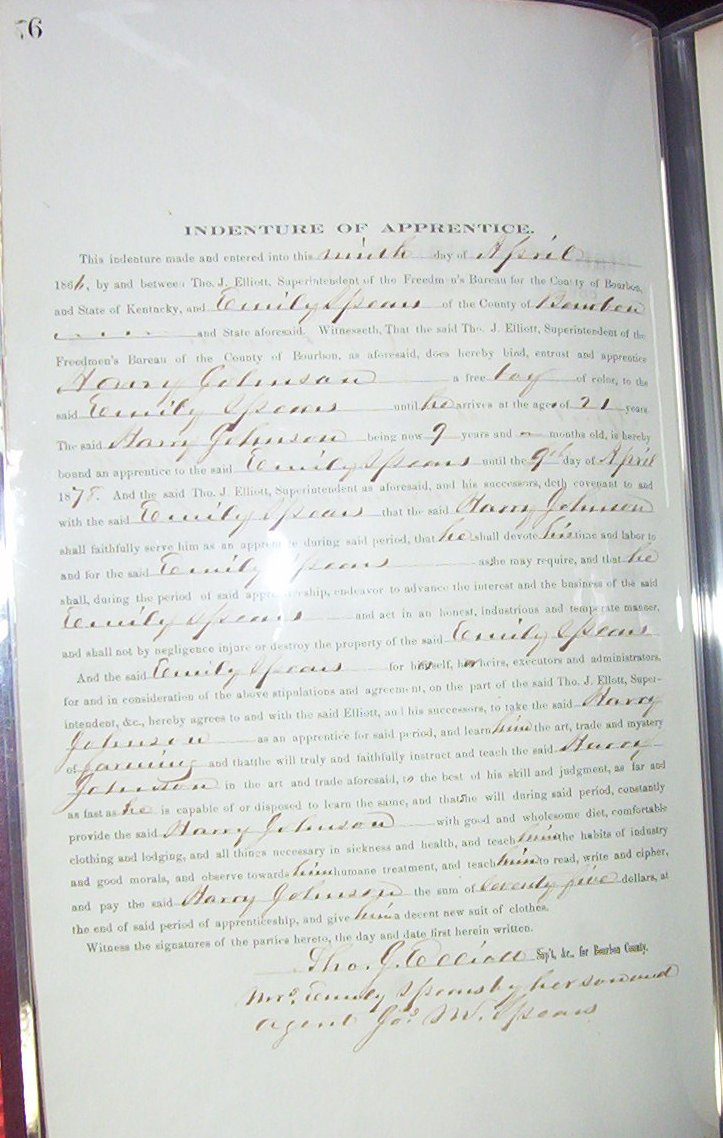 76
INDENTURE OF APPRENTICE.
This indenture made and entered into this ninth day of April
1866, by and between Tho. J. Elliott, Superintendent of the Freedmen's Bureau for the County of Bourbon,
and State of Kentucky, and Emily Spears of the County of Bourbon
and State aforesaid. Witnesseth, That the said Tho. J. Elliott, Superintendent of the
Freedmen's Bureau of the County of Bourbon, as aforesaid, does hereby bind, entrust and apprentice
Harry Johnson a free boy of color, to the
said Emily Spears until he arrives at the age of 21 years
The said Harry Johnson being now 9 years and - months old, is hereby
bound an apprentice to the said Emily Spears until the 9th day of April
1878. And the said Tho. J. Elliott, Superintendent as aforesaid, and his successors, doth covenant to and
with the said Emily Spears that the said Harry Johnson
shall faithfully serve him as an apprentice during said period, that he shall devote his time and labor to
and for the said Emily Spears as she may require, and that he
shall, during the period of said apprenticeship, endeavor to advance the interest and the business of the said
Emily Spears and act in an honest, industrious and temperate manner,
and shall not by negligence injure or destroy the property of the said Emily Spears
And the said Emily Spears for herself, her heirs, executors and administrators,
for and in consideration of the above stipulations and agreement, on the part of the said Tho. J. Elliott, Super-
intendent, &c., hereby agrees to and with the said Elliott, and his successors, to take the said Harry
Johnson as an apprentice for said period, and learn him the art, trade and mystery
of farming and that he will truly and faithfully instruct and teach the said Harry
Johnson in the art and trade aforesaid, to the best of his skill and judgment, as far and
as fast as he is capable of or disposed to learn the same, and that she will during said period, constantly
provide the said Harry Johnson with good and wholesome diet, comfortable
clothing and lodging, and all things necessary in sickness and health, and teach him the habits of industry
and good morals, and observe towards him humane treatment, and teach him to read, write and cipher,
and pay the said Harry Johnson the sum of seventy five dollars, at
the end of said period of apprenticeship, and give him a decent new suit of clothes.
Witness the signatures of the parties hereto, the day and date first herein written.
Tho. J. Elliott Sup't, &c., for Bourbon County.
Mrs. Emily Spears by her son and
agent Jas M. Spears